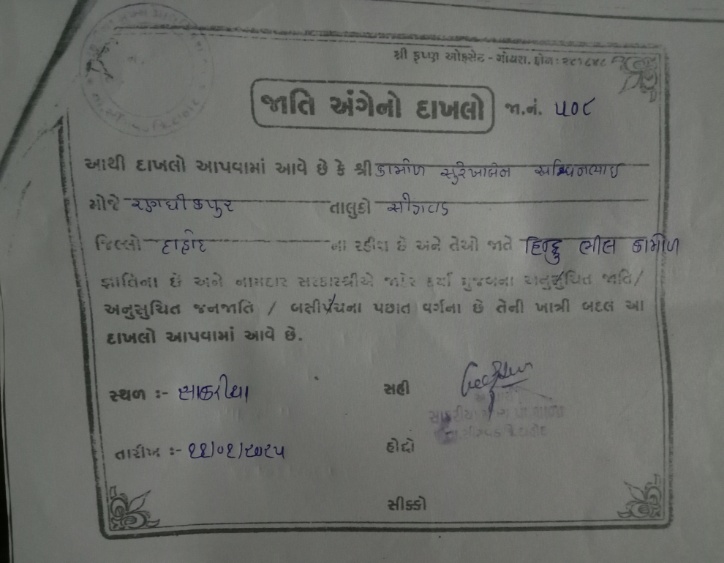 શ્રી કૃષ્ણ ઓફસેટ - ગોધરા, ફોન : ૨૪૬૮૪૮
જાતિ અંગેનો દાખલો જા.નં. ૫૦૮
આથી દાખલો આપવામાં આવે છે કે શ્રી ડામોળ સુરેખાબેન અશ્વિનભાઇ
મોજે રણધીકપુર તાલુકો સીંગવડ
જિલ્લો દાહોદ ના રહીશ છે અને તેઓ જાતે હિન્દુ ભીલ ડામોળ
જ્ઞાતિના છે અને નામદાર સરકારશ્રીએ જાહેર કર્યા મુજબના અનુસુચિત જાતિ/
અનુસુચિત જનજાતિ / બક્ષીપંચના પછાત વર્ગના છે તેની ખાત્રી બદલ આ
દાખલો આપવામાં આવે છે.
સ્થળ :- સાકરીયા સહી
તારીખ :- હોદ્દો
સીક્કો